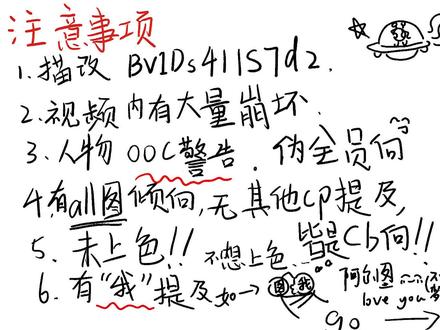 注意事项
1.描改 BV1Ds411S7d2.
2.视频内有大量崩坏.
3.人物 OOC警告. 伪全员向
4.有all图倾向,无其他cp提及,
皆是Cb向!!
5. 未上色!! 不想上色...
6. 有“我”提及 如→ 图 我
阿图
love you
go